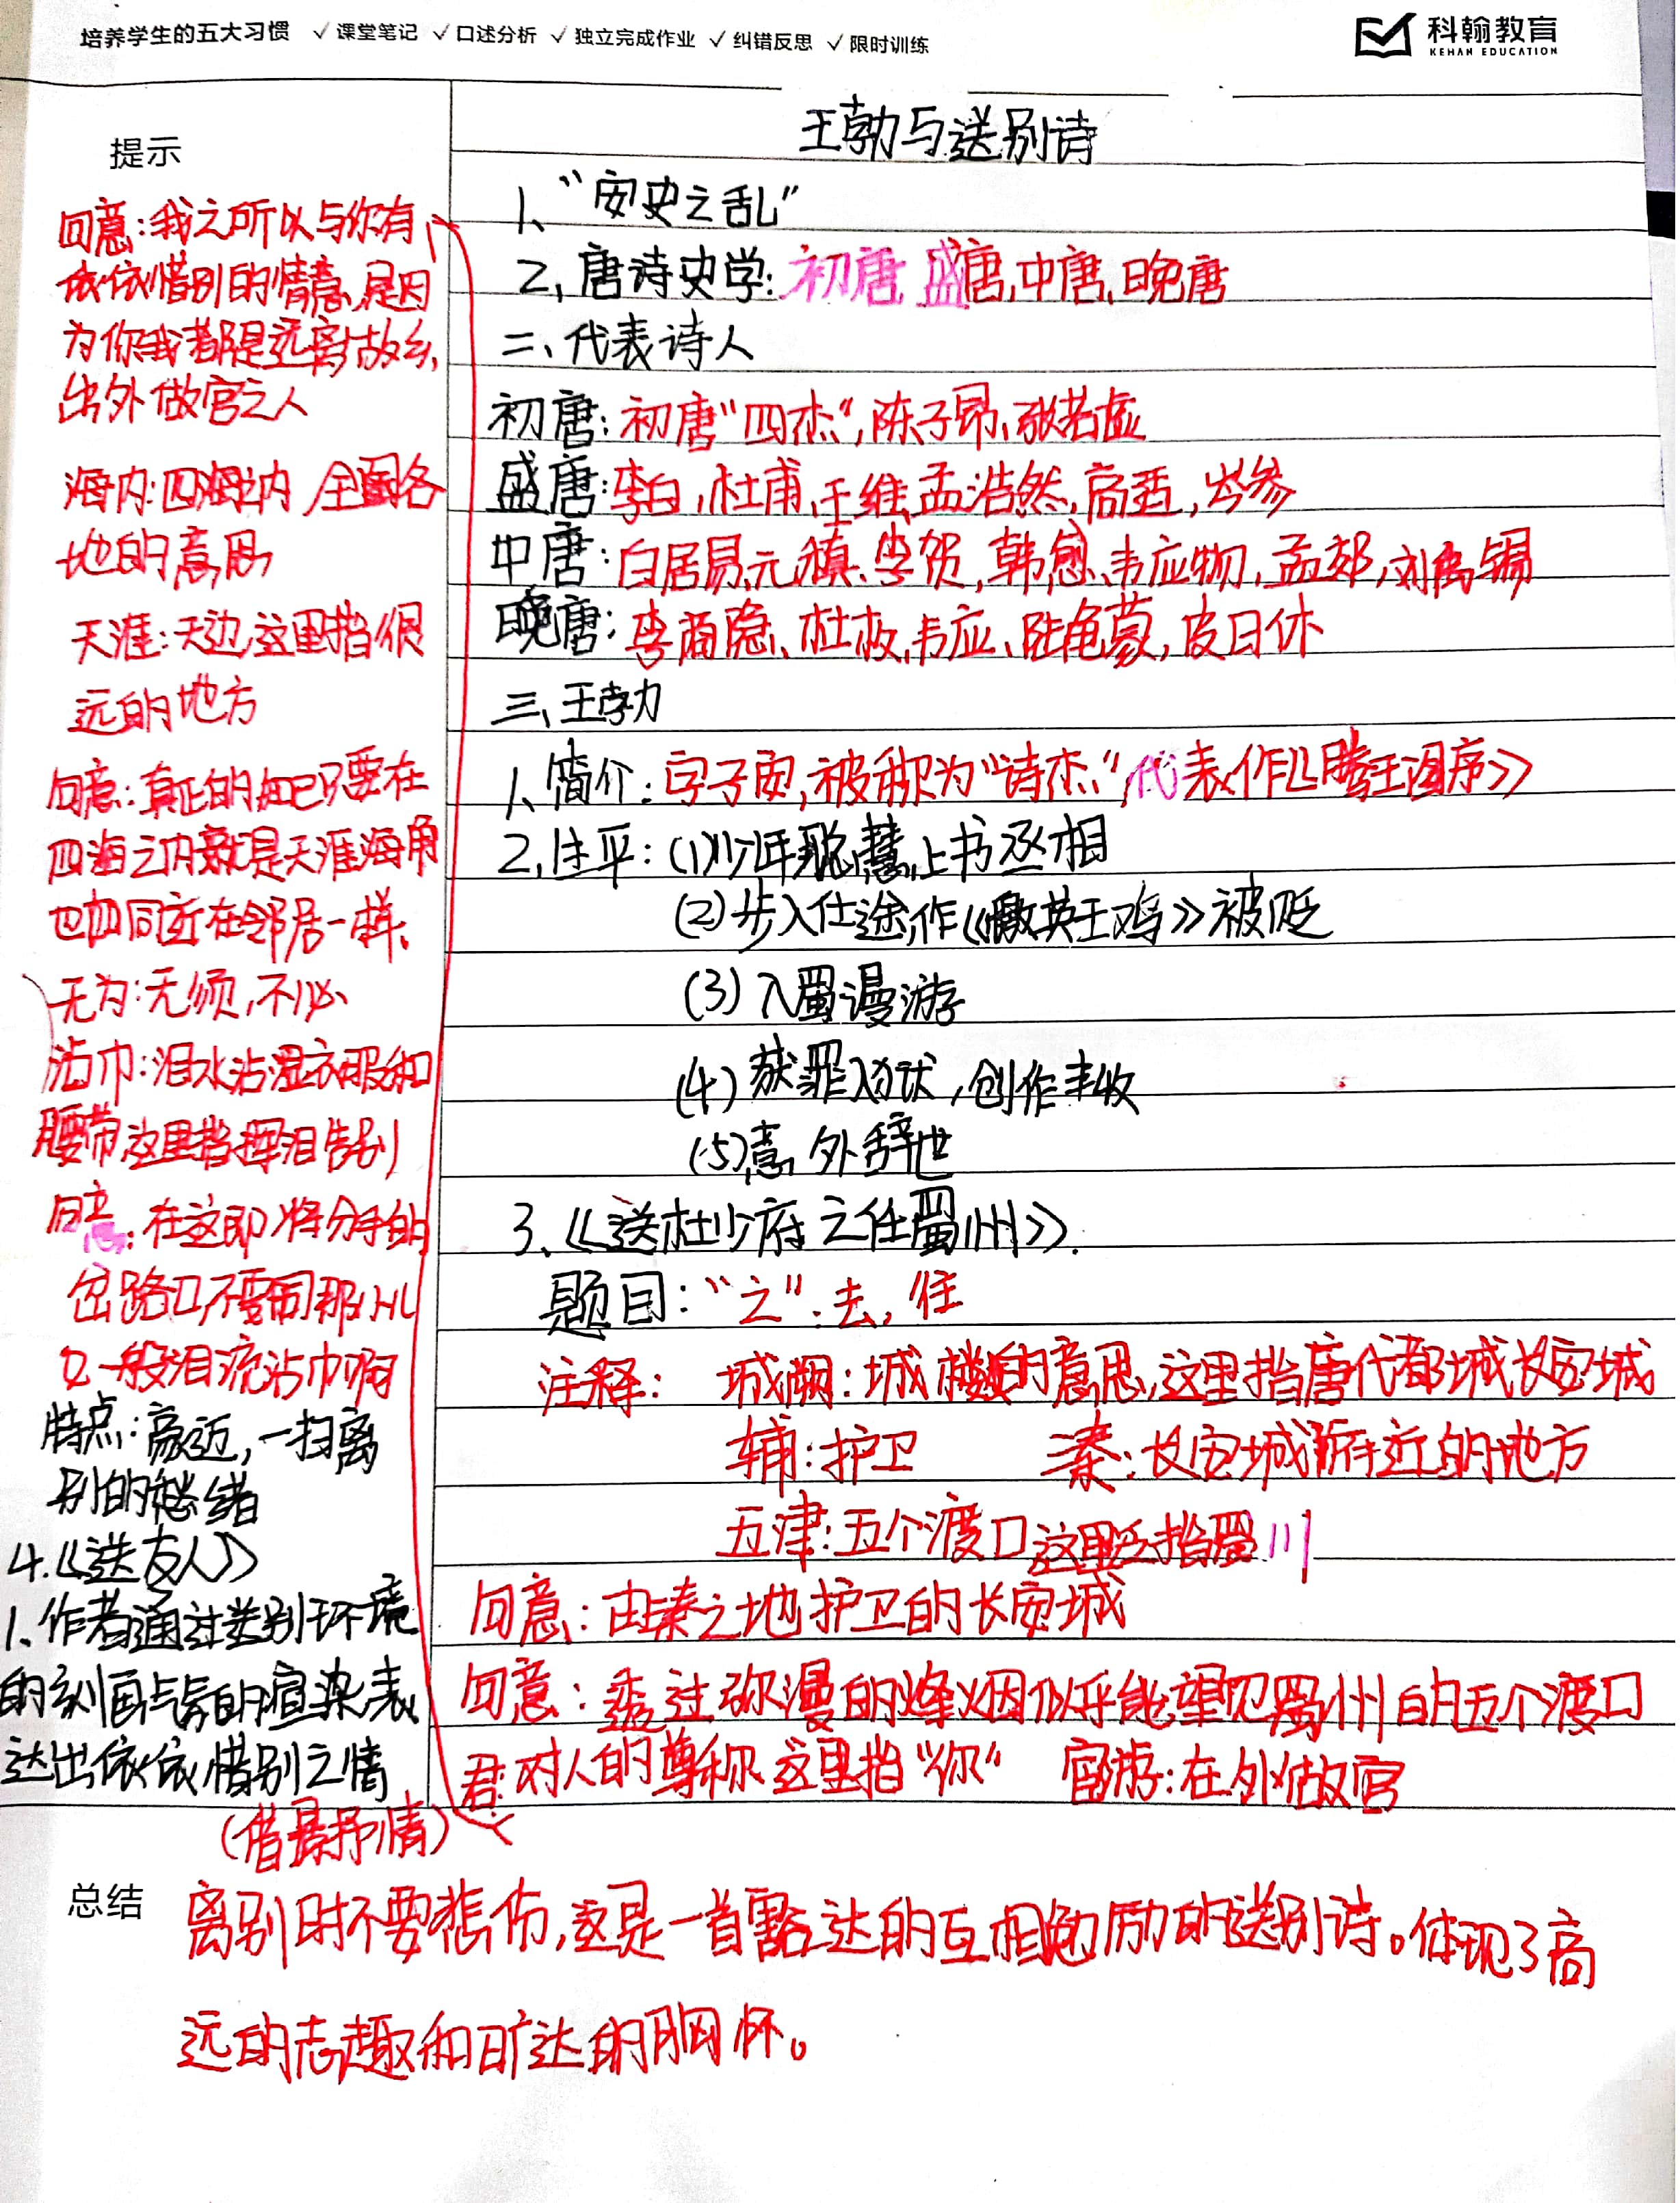 培养学生的五大习惯 ✓课堂笔记 ✓口述分析 ✓独立完成作业 ✓纠错反思 ✓限时训练
科翰教育
KEHAN EDUCATION
王勃与送别诗
1、“安史之乱”
2，唐诗史学：初唐、盛唐，中唐，晚唐
二、代表诗人
初唐：初唐“四杰”，陈子昂，张若虚
盛唐：李白，杜甫，王维，孟浩然，高适，岑参
中唐：白居易，元稹，李贺，韩愈，韦应物，孟郊，刘禹锡
晚唐：李商隐、杜牧，韦应、陆龟蒙，皮日休
三、王勃
1、简介：字子安，被称为“诗杰”，代表作《滕王阁序》
2，生平：(1)少年聪慧，上书丞相
(2)步入仕途，作《檄英王鸡》被贬
(3)入蜀漫游
(4)获罪入狱，创作丰收
(5)意外辞世
3、《送杜少府之任蜀州》.
题目：“之”：去，往
注释： 城阙：城楼的意思，这里指唐代都城长安城
辅：护卫 秦：长安城附近的地方
五津：五个渡口，这里泛指蜀川
句意：由秦之地护卫的长安城
句意：透过弥漫的烽烟似乎能望见蜀州的五个渡口
君：对人的尊称，这里指“你” 宦游：在外做官
提示
句意：我之所以与你有
依依惜别的情意，是因
为你我都是远离故乡，
出外做官之人
海内：四海之内，全国各
地的意思
天涯：天边，这里指很
远的地方
句意：真正的知己只要在
四海之内，就是天涯海角
也如同近在邻居一样、
无为：无须，不必
沾巾：泪水沾湿衣服和
腰带，这里指挥泪告别
句意：在这即将分手的
岔路口，不要同那小儿
女一般泪流沾巾啊
特点：豪迈，一扫离
别的愁绪
4.《送友人》
1、作者通过送别环境
的刻画与氛的渲染表
达出依依惜别之情
(借景抒情)
总结
离别时不要悲伤，这是一首豁达的互相勉励的送别诗。体现了高
远的志趣和旷达的胸怀。